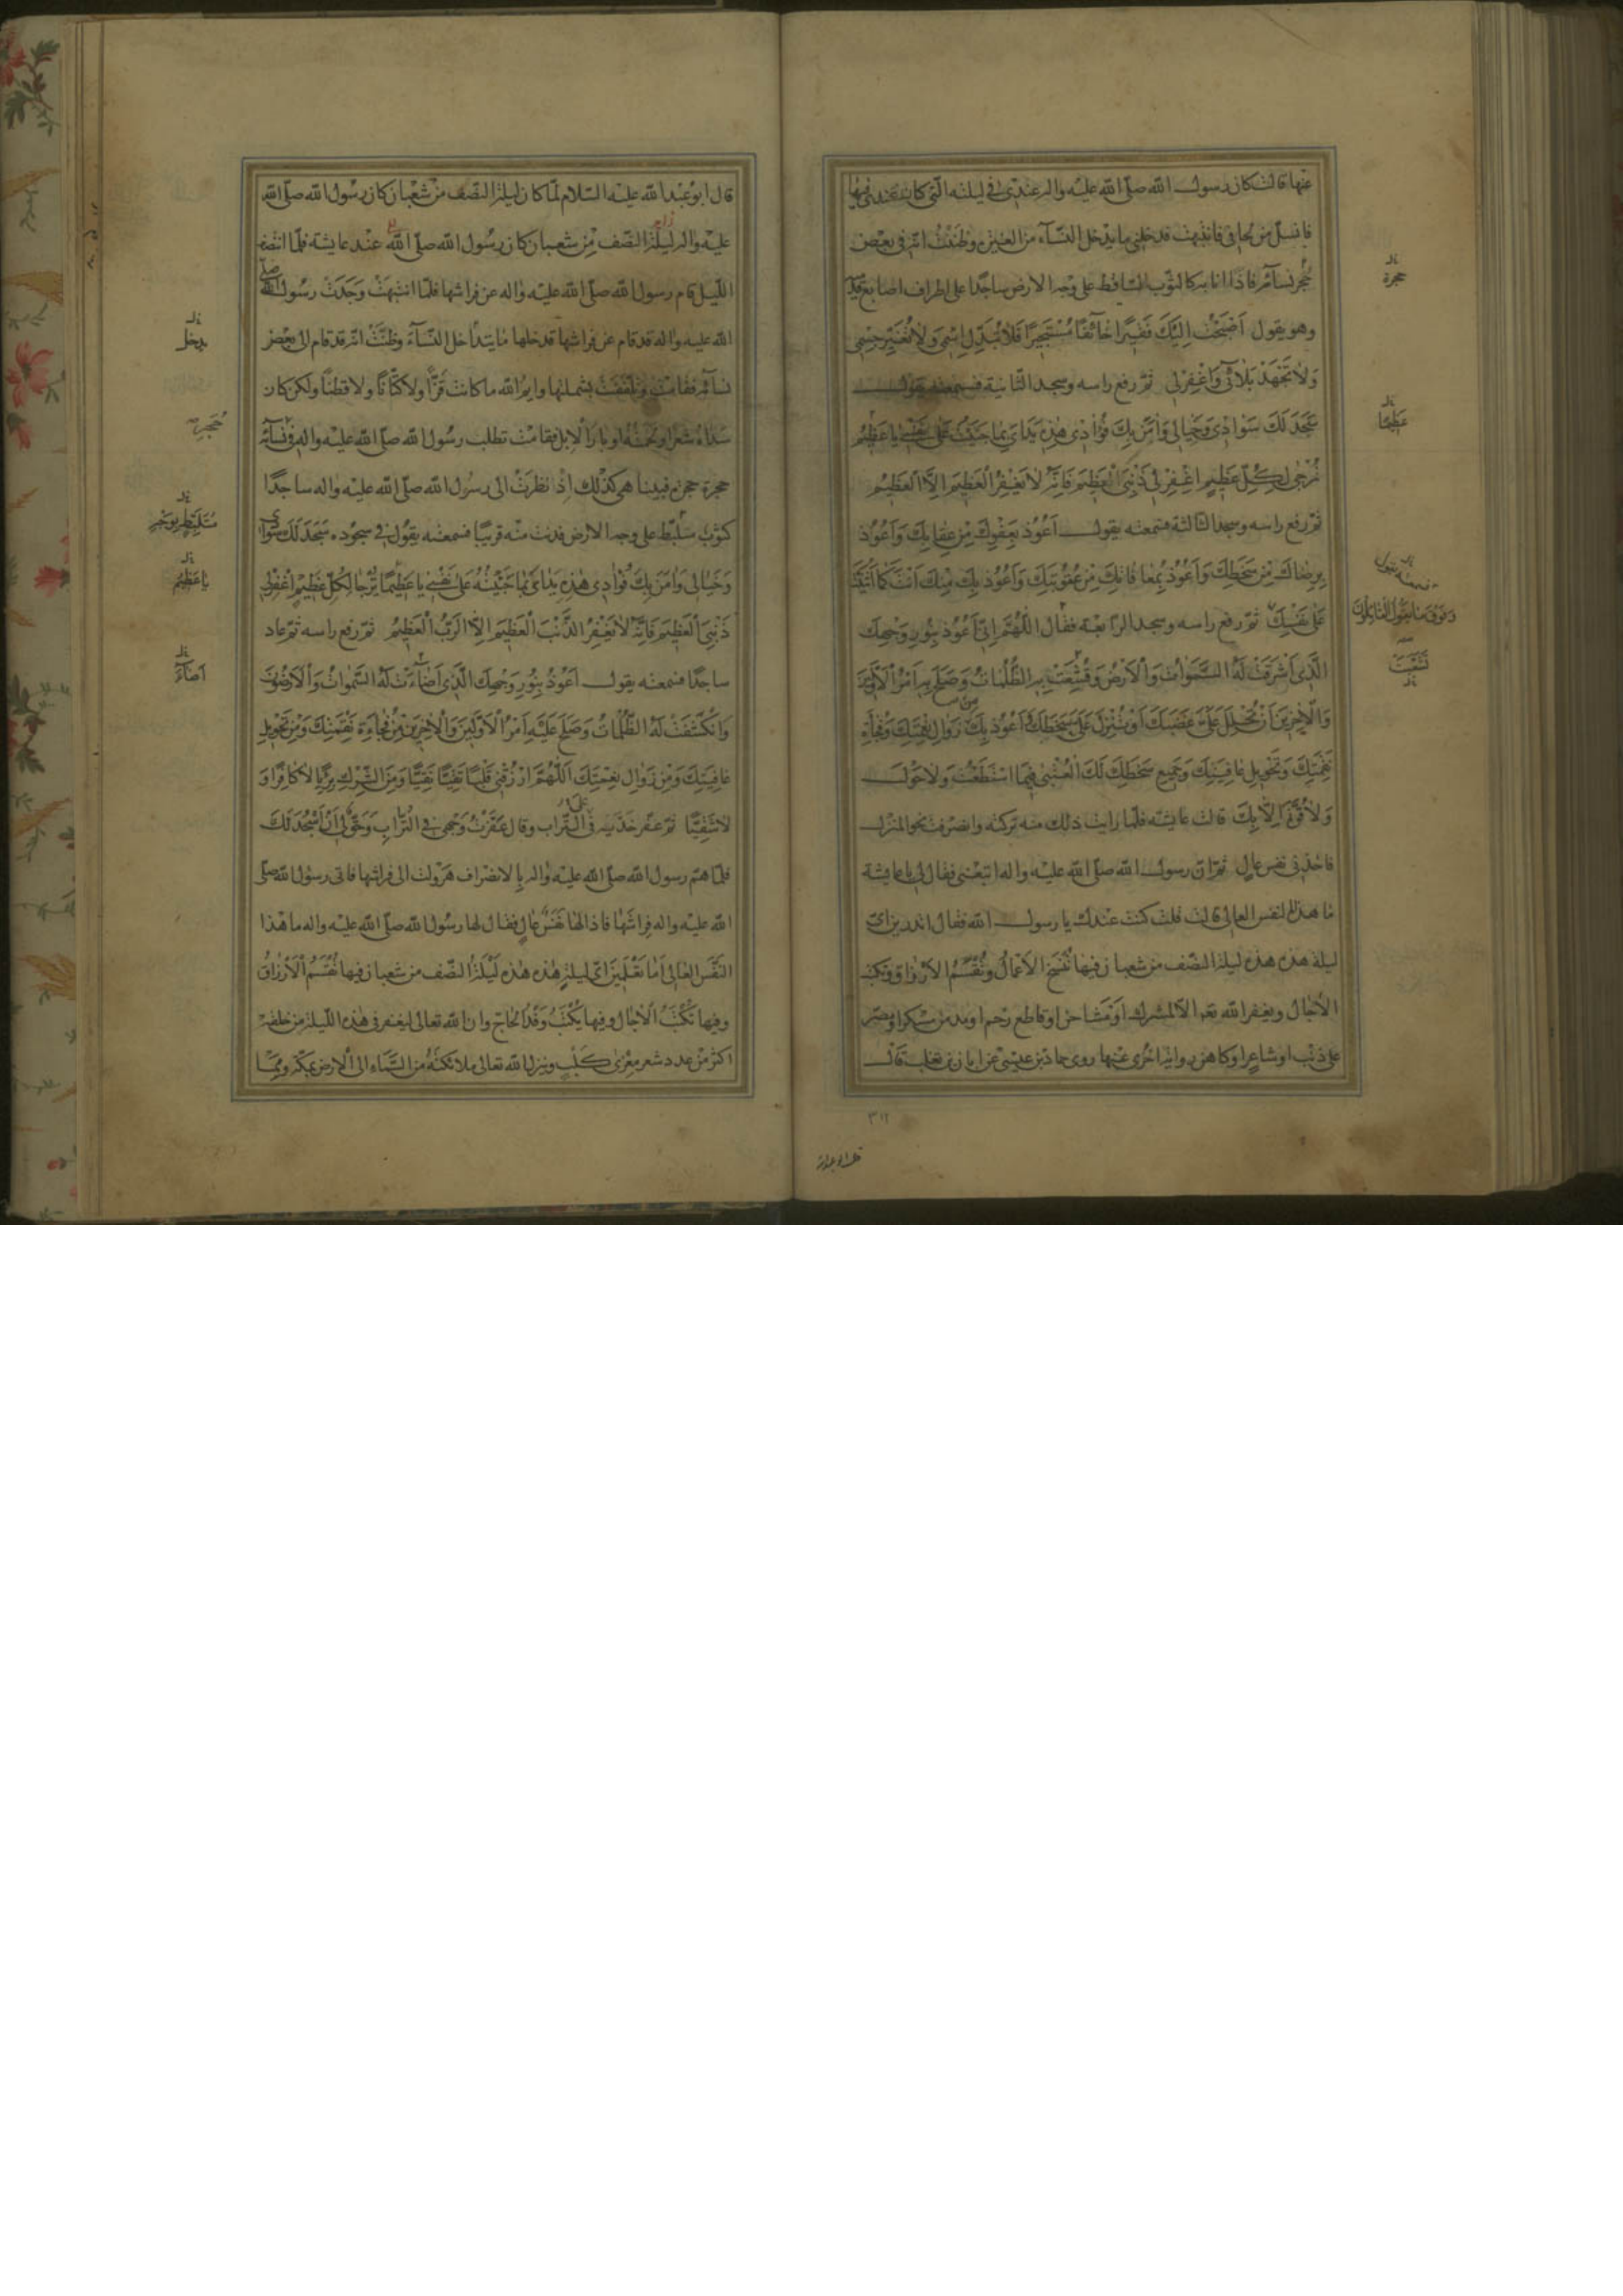 عنها قالت كان رسول الله صلى الله عليه واله عندي في ليلته التي كان عندي فيها
فانسل من لحافي فانتبهت فدخلني ما يدخل النساء من الغيرة وظننت انه في بعض
حجر نسائه فاذا انا به كالثوب الساقط على وجه الارض ساجدا على اطراف اصابع قدميه
وهو يقول اَصْبَحْتُ اِلَيْكَ فَقيرًا خائِفًا مُسْتَجيرًا فَلا تُبَدِّلِ اسْمي وَلا تُغَيِّرْ جِسْمي
وَلا تَجْهَدْ بَلائي وَاغْفِرْلي ثم رفع راسه وسجد الثانية فسمعته يقول
سَجَدَ لَكَ سَوادي وَخَيالي وَامَنَ بِكَ فُؤادي هذِهِ يَدايَ بِما جَنَيْتُ عَلى نَفْسي يا عَظيمُ
تُرْجى لِكُلِّ عَظيمٍ اغْفِرْ لي ذَنْبِيَ الْعَظيمَ فَاِنَّهُ لا يَغْفِرُ الْعَظيمَ اِلَّا الْعَظيمُ
ثم رفع راسه وسجد الثالثة فسمعته يقول اَعُوذُ بِعَفْوِكَ مِنْ عِقابِكَ وَاَعُوذُ
بِرِضاكَ مِنْ سَخَطِكَ وَاَعُوذُ بِمُعافاتِكَ مِنْ عُقُوبَتِكَ وَاَعُوذُ بِكَ مِنْكَ اَنْتَ كَما اَثْنَيْتَ
عَلى نَفْسِكَ ثم رفع راسه وسجد الرابعة فقال اللّهُمَّ اِنّي اَعُوذُ بِنُورِ وَجْهِكَ
الَّذي اَشْرَقَتْ لَهُ السَّمواتُ وَالْاَرْضُ وَقُشِعَتْ بِهِ الظُّلُماتُ وَصَلَحَ بِهِ اَمْرُ الْاَوَّلينَ
وَالْاخِرينَ اَنْ تُحْلِلَ عَلَيَّ غَضَبَكَ اَوْ تُنْزِلَ عَلَيَّ سَخَطَكَ اَعُوذُ بِكَ مِنْ زَوالِ نِعْمَتِكَ وَفُجْأَةِ
نِقْمَتِكَ وَتَحْويلِ عافِيَتِكَ وَجَميعِ سَخَطِكَ لَكَ الْعُتْبى فيمَا اسْتَطَعْتُ وَلا حَوْلَ
وَلا قُوَّةَ اِلّا بِكَ قالت عايشة فلما رايت ذلك منه تركته وانصرفت نحو المنزل
فاخذني نفس عال ثم ان رسول الله صلى الله عليه واله اتبعني فقال لي يا عايشة
ما هذا النفس العالي قالت قلت كنت عندك يا رسول الله فقال اتدرين اي
ليلة هذه هذه ليلة النصف من شعبان فيها تنسخ الاعمال وتقسم الارزاق وتكتب
الاجال ويغفر الله تعالى الا لمشرك او مشاحن او قاطع رحم او مدمن مسكر او مصر
على ذنب او شاعر او كاهن رواية اخرى عنها روى حماد بن عيسى عن ابان بن تغلب قال
حجرة
عظيما
فسمعته يقول
وفوق ما يقول القائلون
قال ابو عبد الله عليه السلام لما كان ليلة النصف من شعبان كان رسول الله صلى الله
عليه واله ليلة النصف من شعبان كان رسول الله صلى الله عند عايشة فلما انتصف
الليل قام رسول الله صلى الله عليه واله عن فراشها فلما انتبهت وجدت رسول الله صلى
الله عليه واله قد قام عن فراشها فدخلها ما يتداخل النساء وظنت انه قد قام الى بعض
نسائه فقامت وتلففت بشملتها وايم الله ما كانت قزا ولا كتانا ولا قطنا ولكن كان
سداه شعرا ولحمته اوبار الابل فقامت تطلب رسول الله صلى الله عليه واله في نسائه
حجرة حجرة فبينا هي كذلك اذ نظرت الى رسول الله صلى الله عليه واله ساجدا
كثوب متلبط على وجه الارض فدنت منه قريبا فسمعته يقول في سجوده سَجَدَ لَكَ سَوادي
وَخَيالي وَامَنَ بِكَ فُؤادي هذِهِ يَدايَ بِما جَنَيْتُهُ عَلى نَفْسي يا عَظيمًا يُرْجا لِكُلِّ عَظيمٍ اغْفِرْ لي
ذَنْبِيَ الْعَظيمَ فَاِنَّهُ لا يَغْفِرُ الذَّنْبَ الْعَظيمَ اِلَّا الرَّبُّ الْعَظيمُ ثم رفع راسه ثم عاد
ساجدا فسمعته يقول اَعُوذُ بِنُورِ وَجْهِكَ الَّذي اَضاءَتْ لَهُ السَّمواتُ وَالْاَرَضُونَ
وَانْكَشَفَتْ لَهُ الظُّلُماتُ وَصَلَحَ عَلَيْهِ اَمْرُ الْاَوَّلينَ وَالْاخِرينَ مِنْ فُجاءَةِ نِقْمَتِكَ وَمِنْ تَحْويلِ
عافِيَتِكَ وَمِنْ زَوالِ نِعْمَتِكَ اَللّهُمَّ ارْزُقْني قَلْبًا تَقِيًّا نَقِيًّا وَمِنَ الشِّرْكِ بَرِيًّا لا كافِرًا وَ
لا شَقِيًّا ثم عفر خديه في التراب وقال عَفَّرْتُ وَجْهي فِي التُّرابِ وَحُقَّ لي اَنْ اَسْجُدَ لَكَ
فلما هم رسول الله صلى الله عليه واله بالانصراف هرولت الى فراشها فاتى رسول الله صلى
الله عليه واله فراشها فاذا لها نفس عال فقال لها رسول الله صلى الله عليه واله ما هذا
النفس العالي اما تعلمين اي ليلة هذه هذه ليلة النصف من شعبان فيها تقسم الارزاق
وفيها تكتب الاجال وفيها يكتب وفد الحاج وان الله تعالى ليغفر في هذه الليلة من خلقه
اكثر من عدد شعر معزى كلب وينزل الله تعالى ملائكته من السماء الى الارض بمكة ومما
يدخل
حجرته
يا عظيم
اضاء
٣١٢